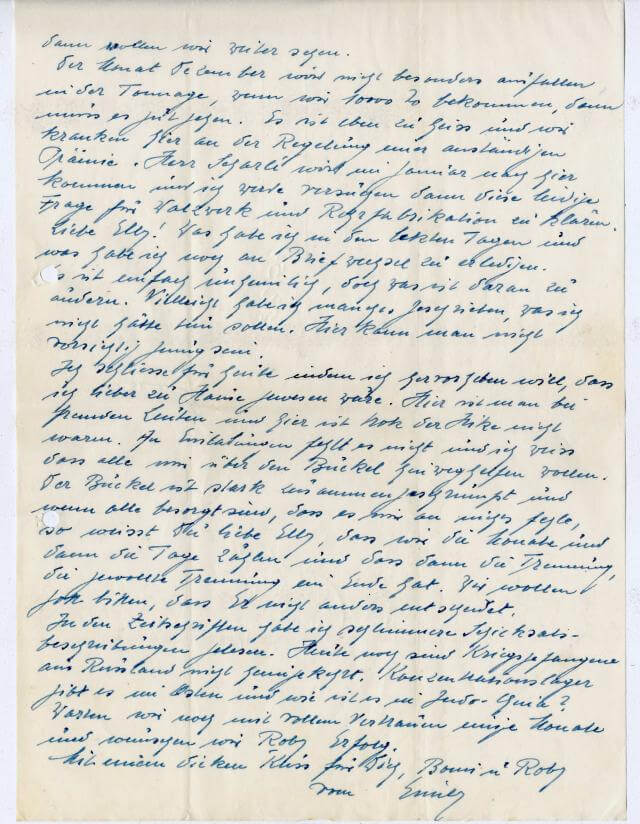 dann wollen wir weiter sehen.
Der Monat Dezember wird nicht besonders ausfallen
in der Tonnage, wenn wir 10000 To bekommen, dann
muss es gut gehen. Es ist eben zu heiss und wir
kranken hier an der Regelung einer anständigen
Prämie. Herr Scharli wird im Januar nach hier
kommen und ich werde versuchen dann diese leidige
Frage für Walzwerk und Rohrfabrikation zu klären.
Liebe Elly! Was habe ich in den letzten Tagen und
was habe ich noch an Briefwechsel zu erledigen.
Es ist einfach unheimlich, doch was ist daran zu
ändern. Villeicht habe ich manches geschrieben, was ich
nicht hätte tun sollen. Hier kann man nicht
vorsichtig genug sein.
Ich schliesse für heute indem ich hervorheben will, dass
ich lieber zu Hause gewesen wäre. Hier ist man bei
fremden Leuten und hier ist trotz der Hitze nicht
warm. An Einladungen fehlt es nicht und ich weiss
dass alle mir über den Buckel hinweghelfen wollen.
Der Buckel ist stark zusammengeschrumpft und
wenn alle besorgt sind, dass es mir an nichts fehle,
so weisst Du liebe Elly, dass wir die Monate und
dann die Tage zählen und dass dann die Trennung,
die gewollte Trennung ein Ende hat. Wir wollen
Gott bitten, dass Er nicht anders entscheidet.
In den Zeitschriften habe ich schlimmere Schicksals-
beschreibungen gelesen. Heute noch sind Kriegsgefangene
aus Russland nicht heimgekehrt. Konzentrationslager
gibt es im Osten und wie ist es in Indo-China?
Warten wir noch mit vollem Vertrauen einige Monate
und wünschen wir Roby Erfolg.
Mit einem dicken Kuss für Dich, Bomi u Roby
vom Emil